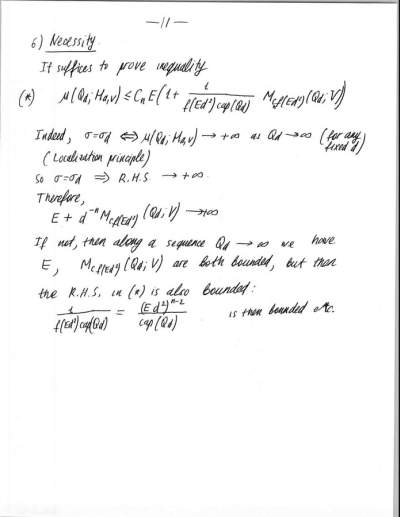 —11—
6) Necessity.
It suffices to prove inequality
(*) μ(Q_d; H_{a,v}) ≤ C_n E(1+ 1/(f(Ed²)cap(Q_d)) M_{cf(Ed²)}(Q_d; V))
Indeed, σ=σ_d ⟺ μ(Q_d; H_{a,v}) → +∞ as Q_d → ∞ (for any fixed d)
(Localization principle)
So σ=σ_d ⟹ R.H.S → +∞.
Therefore,
E + d^{-n} M_{cf(Ed²)}(Q_d; V) → +∞
If not, then along a sequence Q_d → ∞ we have
E, M_{cf(Ed²)}(Q_d; V) are both bounded, but then
the R.H.S. in (*) is also bounded:
1/(f(Ed²)cap(Q_d)) = (Ed²)^{n-2}/cap(Q_d) is then bounded etc.